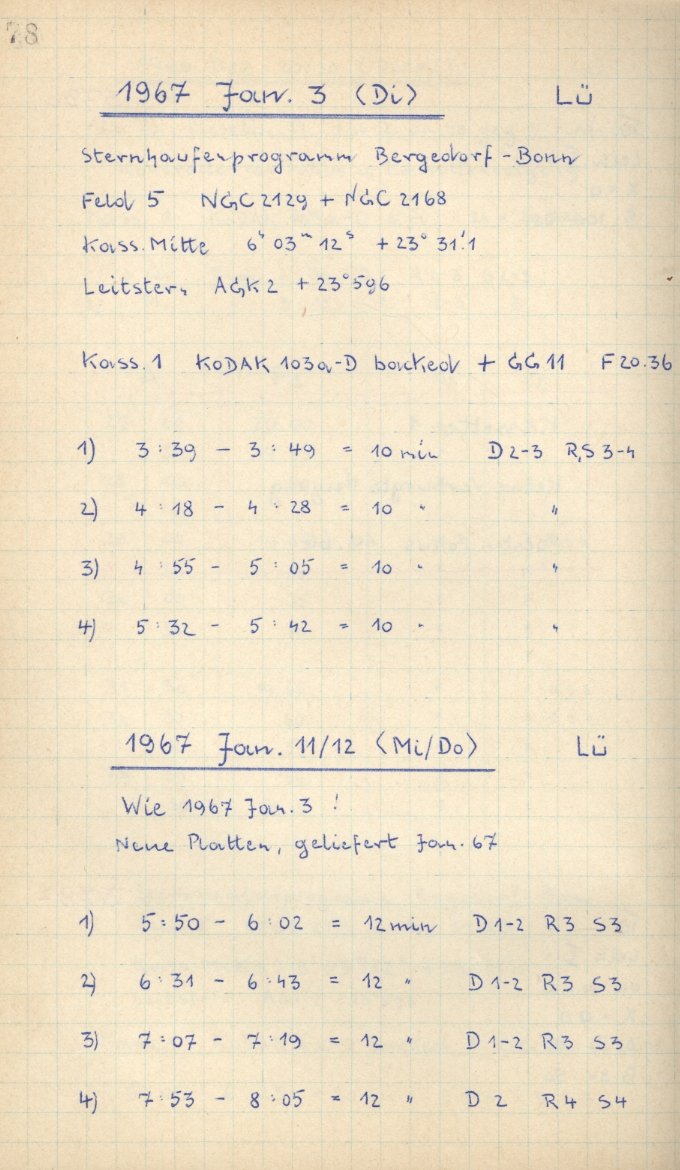 78
1967 Jan. 3 (Di) Lü
Sternhaufenprogramm Bergedorf - Bonn
Feld 5 NGC 2129 + NGC 2168
Kass. Mitte 6ʰ 03ᵐ 12ˢ +23° 31'.1
Leitstern AGK2 +23°596
Kass. 1 KODAK 103a-D backed + GG11 F 20.36
1) 3:39 - 3:49 = 10 min D 2-3 R,S 3-4
2) 4:18 - 4:28 = 10 " "
3) 4:55 - 5:05 = 10 " "
4) 5:32 - 5:42 = 10 " "
1967 Jan. 11/12 (Mi/Do) Lü
Wie 1967 Jan. 3 !
Neue Platten, geliefert Jan. 67
1) 5:50 - 6:02 = 12 min D 1-2 R3 S3
2) 6:31 - 6:43 = 12 " D 1-2 R3 S3
3) 7:07 - 7:19 = 12 " D 1-2 R3 S3
4) 7:53 - 8:05 = 12 " D 2 R4 S4